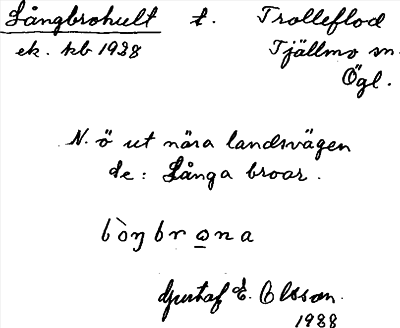 Långbrohult t. Trolleflod
ek. kb 1938 Tjällmo sn.
Ögl.
N. ö ut nära landsvägen
de: Långa broar.
Gustaf E. Olsson.
1988